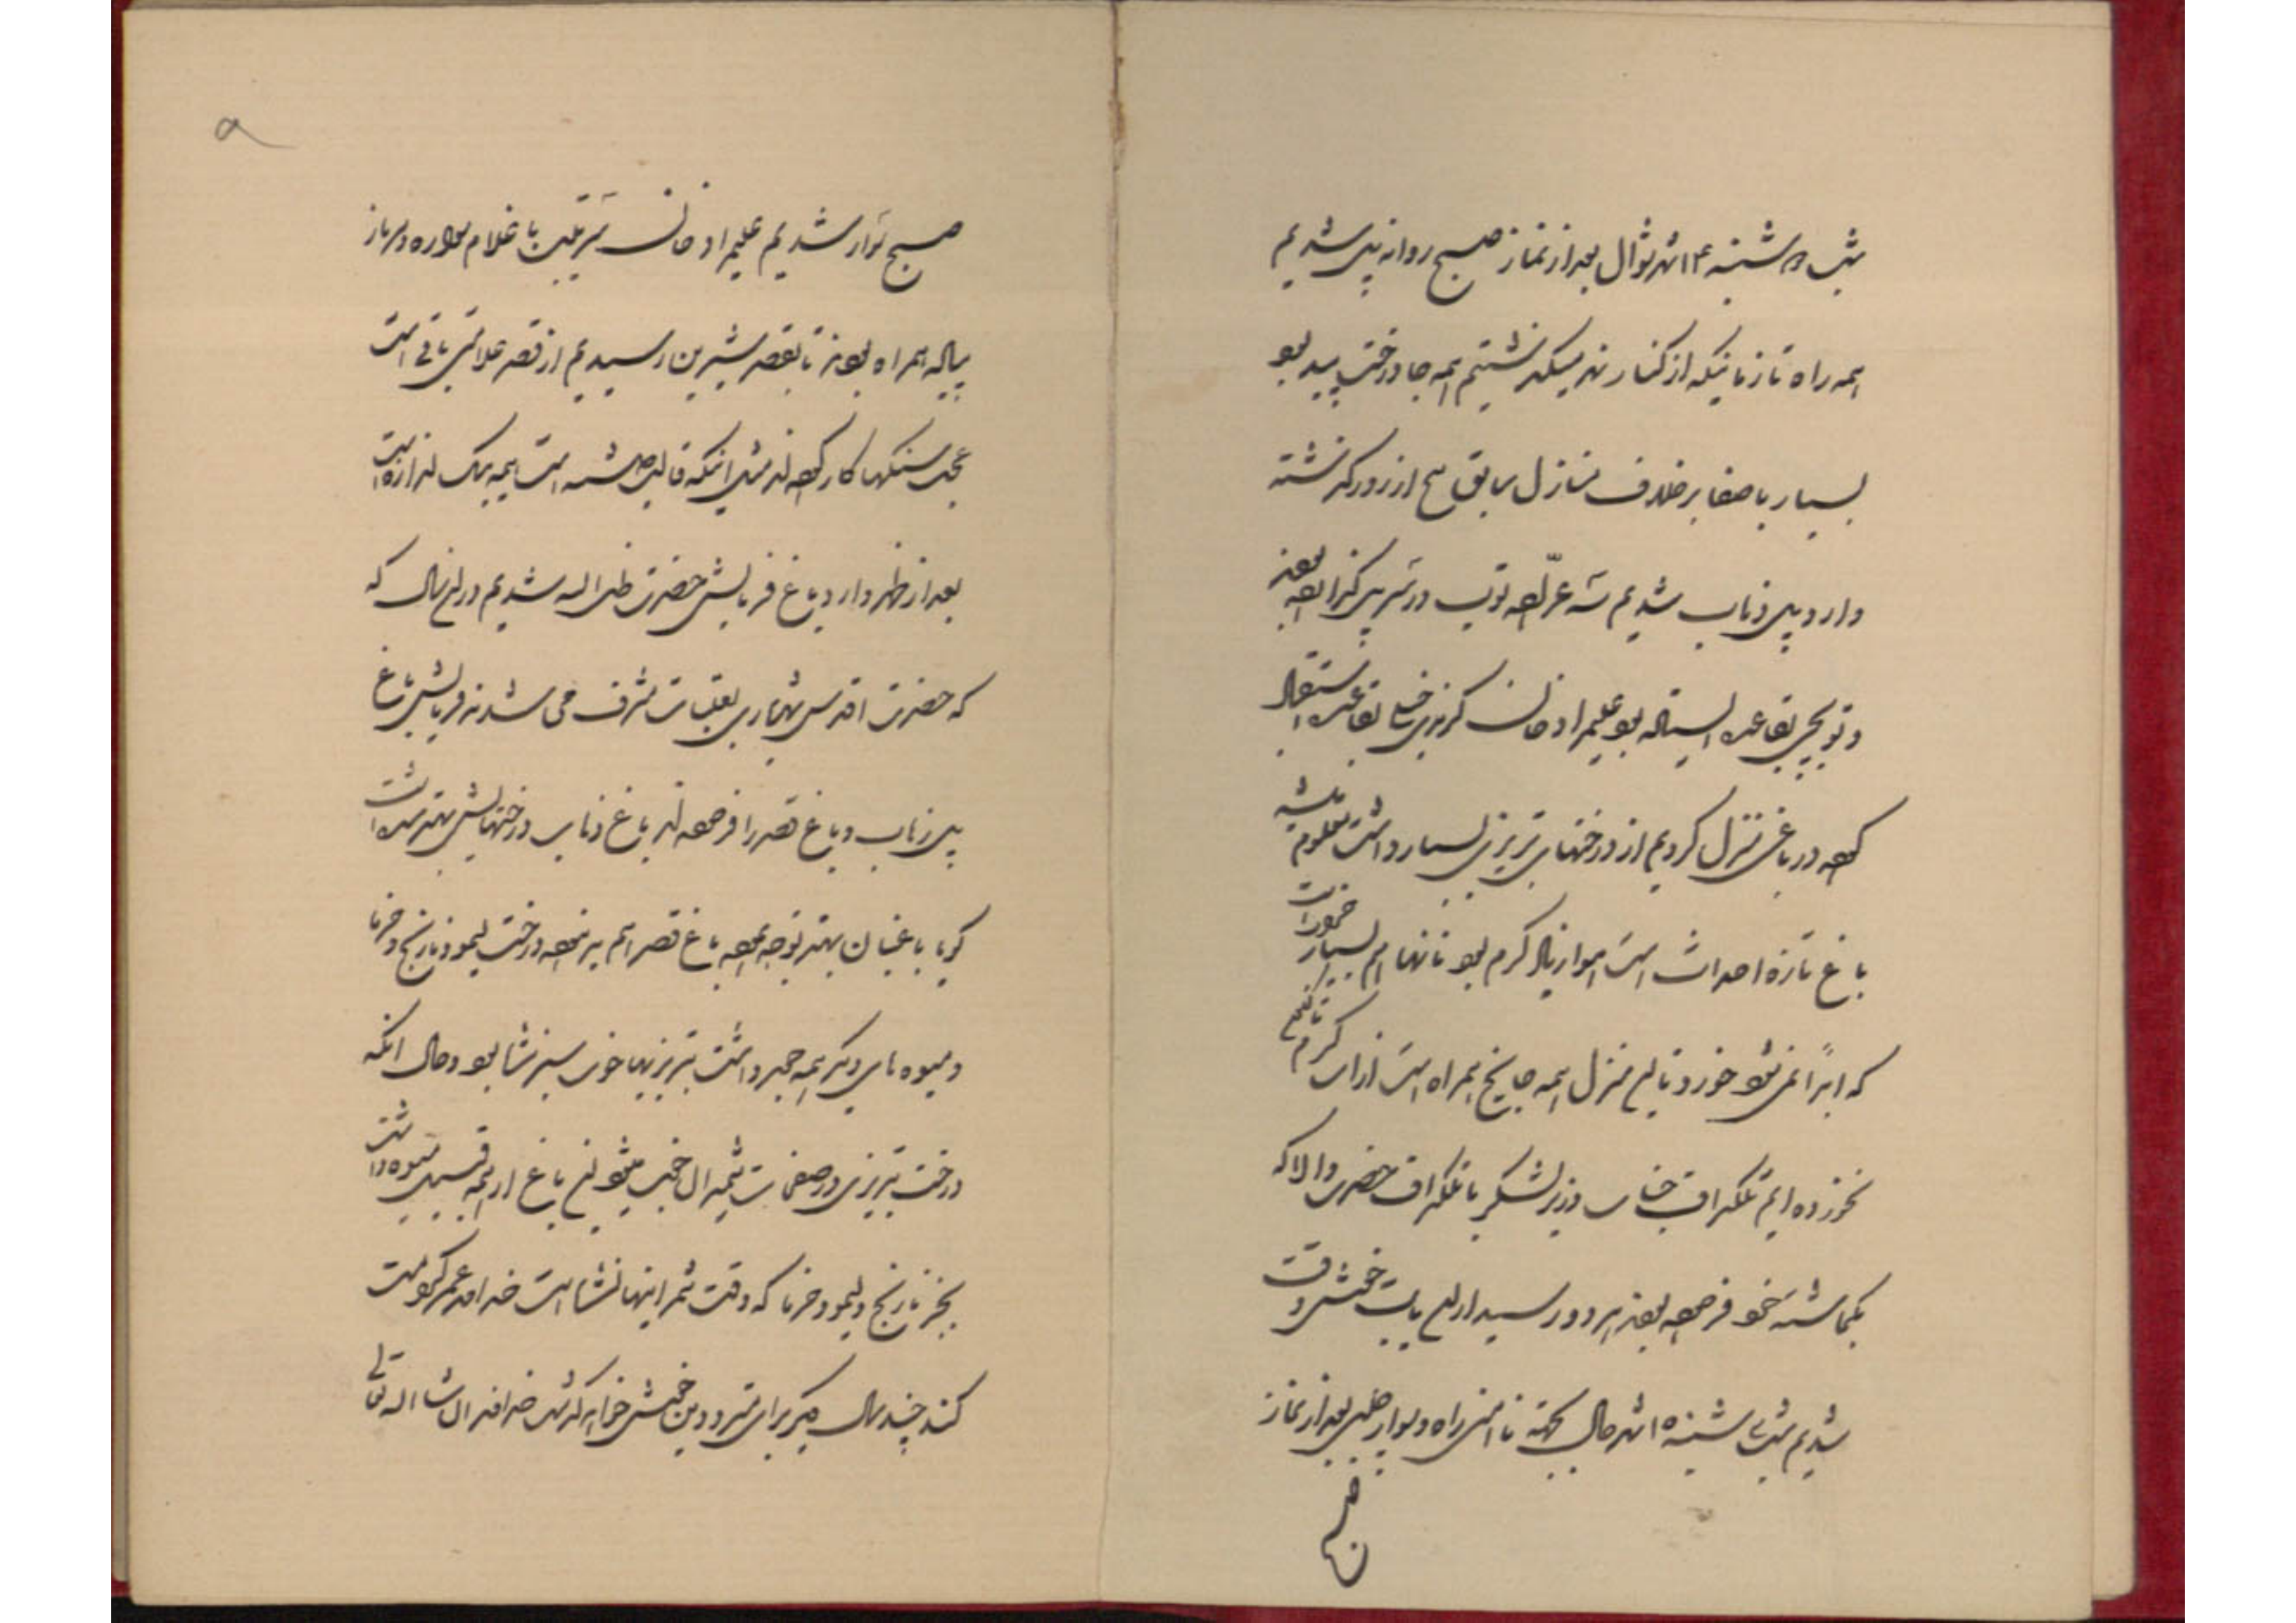 شب دوشنبه ۱۴ شهر شوال بعد از نماز صبح روانه پل شدیم
همه راه تا زمانیکه از کنار نهر میگذشتیم همه جا درخت بید بود
بسیار با صفا بر خلاف منازل سابق سه از روز گذشته
وارد پل ذهاب شدیم سه عرّاده توپ در سر پل گذارده بودند
و توپچی بقاعده ایستاده بود علیمراد خان کرندی خیلی بقاعده استقبال
کرده در باغی منزل کردیم از درختهای تبریزی بسیار داشت معلوم میشد
باغ تازه احداث است هوا زیاد گرم بود نانها هم بسیار بد
که ابداً نمیشود خورد تا این منزل همه جا یخ همراه است از آب گرم تا بحال
نخورده ایم تلگراف جناب وزیر لشکر با تلگراف حضرت والا که
بکماشته خود فرموده بودند هر دو رسید از این بابت خوشوقت
شدیم شب سه شنبه ۱۵ شهر حال بجهة ناامنی راه و بودن بعد از نماز
صبح
۵
صبح سوار شدیم علیمراد خان سرتیپ با غلام سواره و سرباز
پیاده همراه بودند تا بقصر شیرین رسیدیم از قصر علامتی باقی است
عجب سنگها کار کرده اند مثل اینکه قالب شده است همه یک اندازه است
بعد از ظهر وارد باغ فرمایش حضرت ظل اله شدیم در این سال که
که حضرت اقدس شهریاری بعتبات مشرف می شدند فرمایش باغ
پل ذهاب و باغ قصر را فرموده اند باغ ذهاب درختهایش بهتر شده است
گویا باغبان بهتر توجه نموده باغ قصر هم بد نبوده درخت لیمو و نارنج و خرما
و میوه های دیگر همه چیز داشت تبریزیها خوب سبز نشده بود و حال آنکه
درخت تبریزی در صفحات شمال خوب میشود این باغ از همه قسم میوه داشت
بجز نارنج و لیمو و خرما که وقت ثمر اینها نشده است خداوند عمر کرامت
کند چند سال دیگر برای مترددین خوش خواهد گذشت خداوند ان شاء اله تعالی